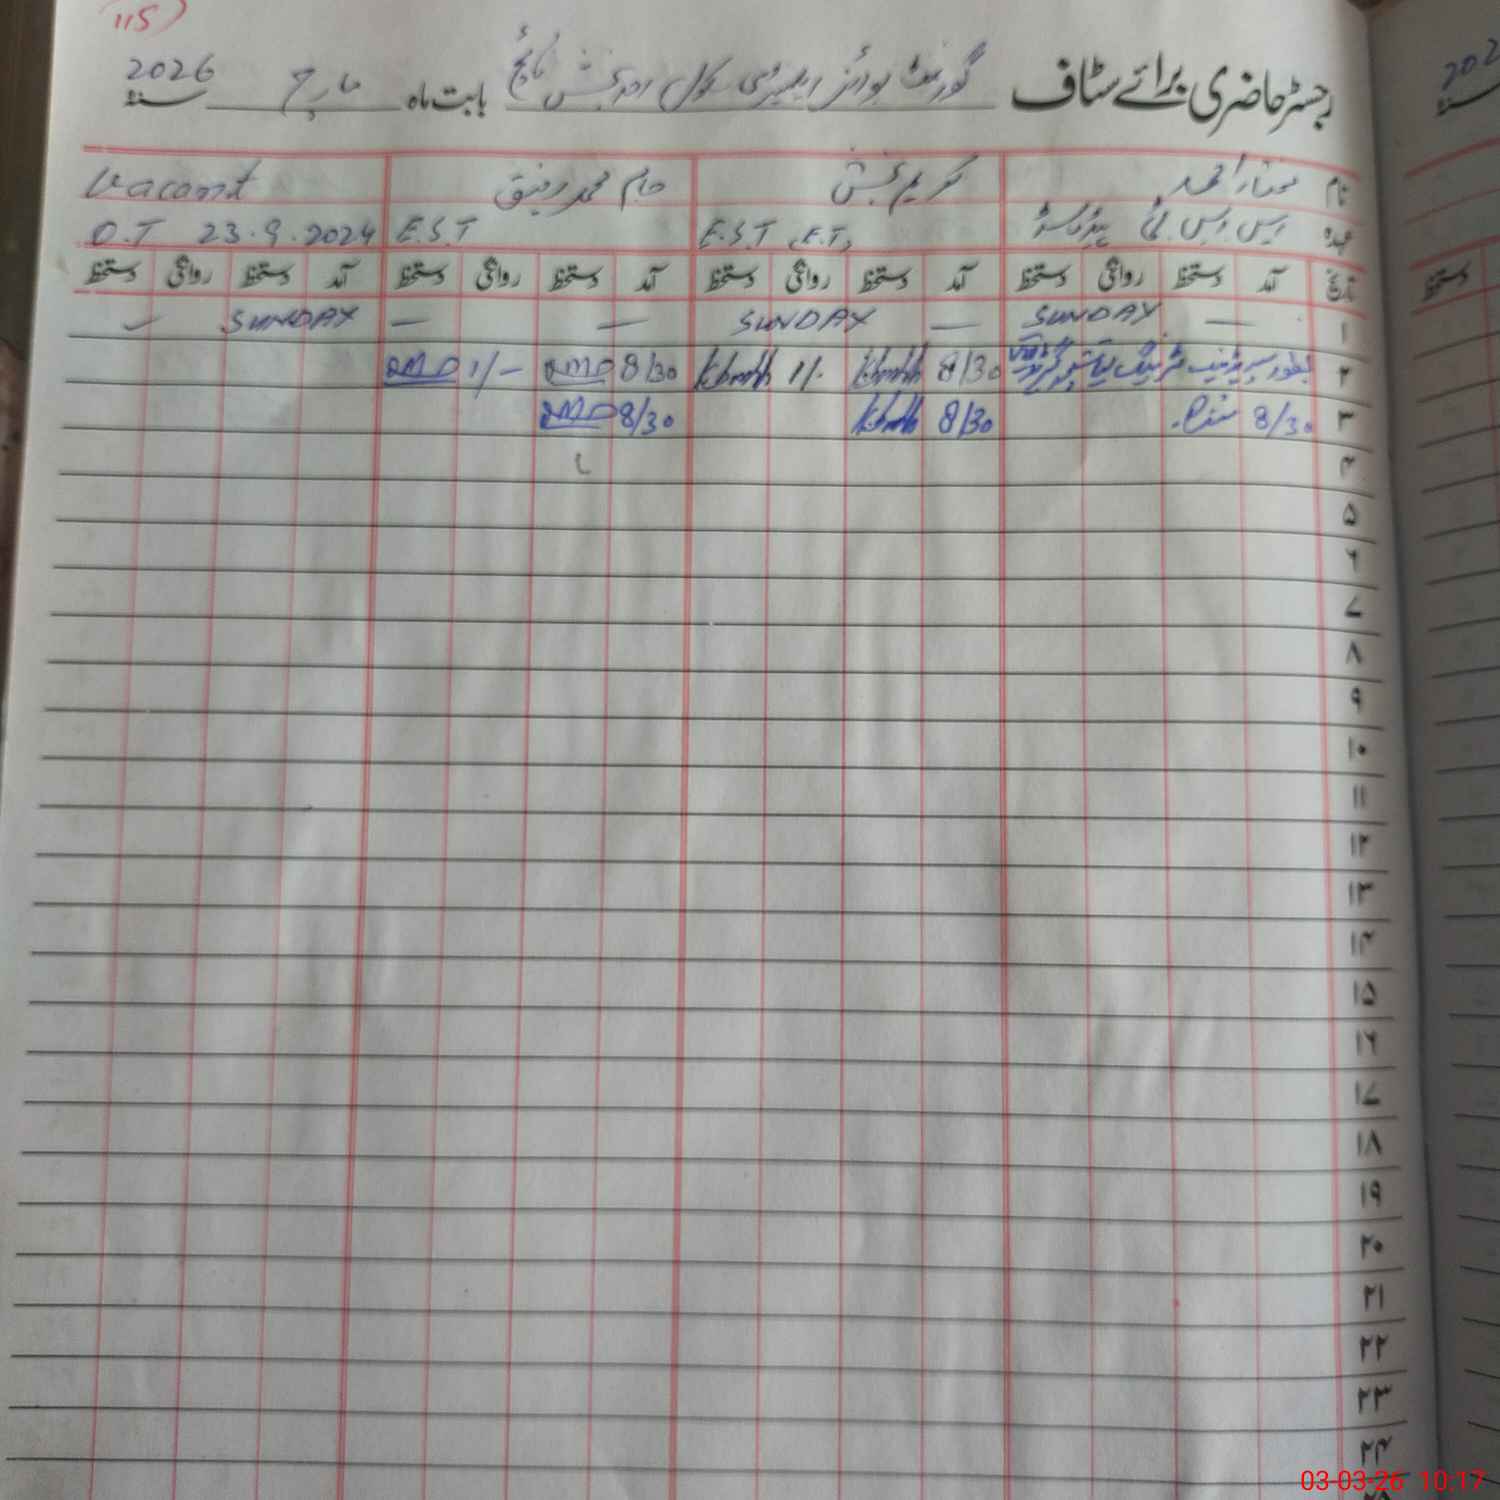 115
رجسٹر حاضری برائے سٹاف گورنمنٹ بوائز ایلیمنٹری سکول احمد بخش بابت ماہ مارچ سنہ 2026
نام ممتاز احمد کریم بخش جام محمد رفیق Vacant
عہدہ ایس ایس ٹی ہیڈ ماسٹر E.S.T (F.T) E.S.T O.T 23.9.2024
تاریخ آمد دستخط روانگی دستخط آمد دستخط روانگی دستخط آمد دستخط روانگی دستخط آمد دستخط روانگی دستخط
۱ — SUNDAY — SUNDAY — — SUNDAY —
۲ بطور 8/30 1/- 8/30 1/-
۳ 8/30 8/30 8/30
۴
۵
۶
۷
۸
۹
۱۰
۱۱
۱۲
۱۳
۱۴
۱۵
۱۶
۱۷
۱۸
۱۹
۲۰
۲۱
۲۲
۲۳
۲۴
۲۵
202
سنہ
دستخط
03-03-26 10:17